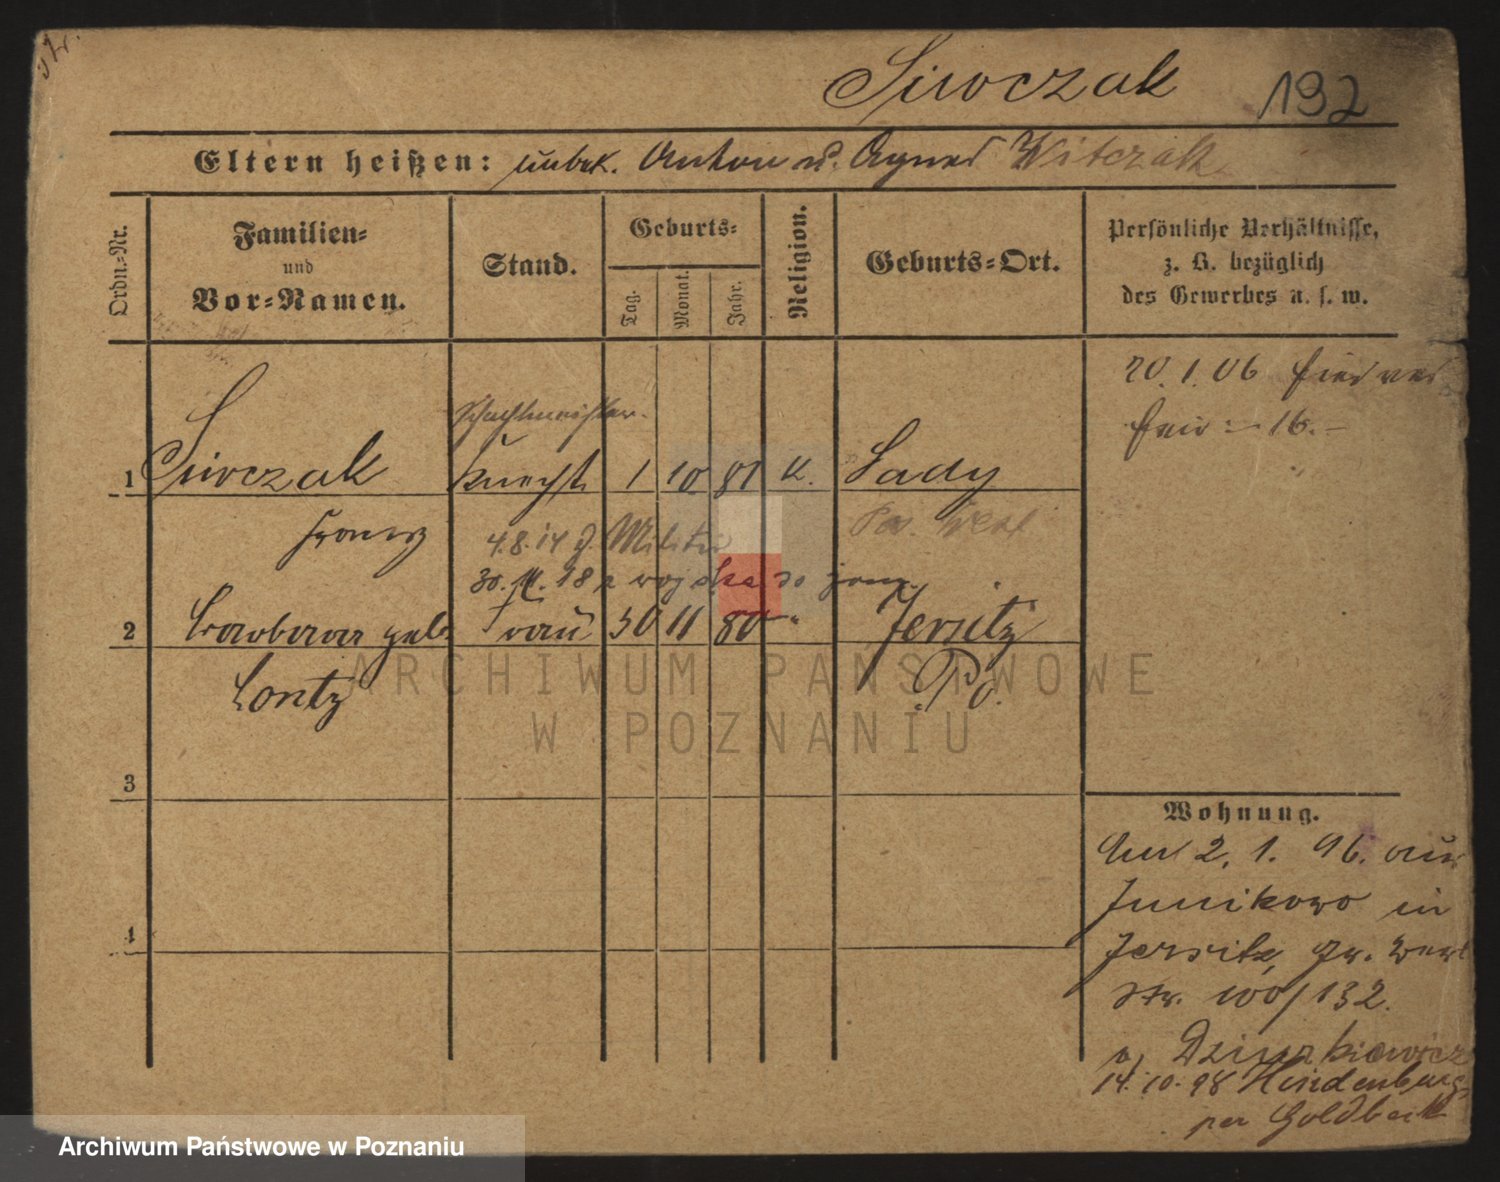 Siwczak 192
Eltern heißen: unbek. Anton u. Agnes Witczak
Ordn.-Nr.
Familien- und Vor-Namen.
Stand.
Geburts-
Tag.
Monat.
Jahr.
Religion.
Geburts-Ort.
Persönliche Verhältnisse, z. B. bezüglich des Gewerbes u. s. w.
20. 1. 06
16.-
Schachtmeister.
1 Siwczak Knecht 1 10 81 K. Sady
Franz
Pos. West
4.8.14 z. Militär
30. 11. 18 z wojska do
2 Barbara geb. Frau 30 11 80 " Jersitz
Lontz
Po.
3
4
Wohnung.
Am 2. 1. 96. aus
Junikowo in
Jersitz, Gr. Berl
Str. 100/132.
14. 10. 98 Hindenburg
per Goldbeck
ARCHIWUM PAŃSTWOWE
W POZNANIU
Archiwum Państwowe w Poznaniu